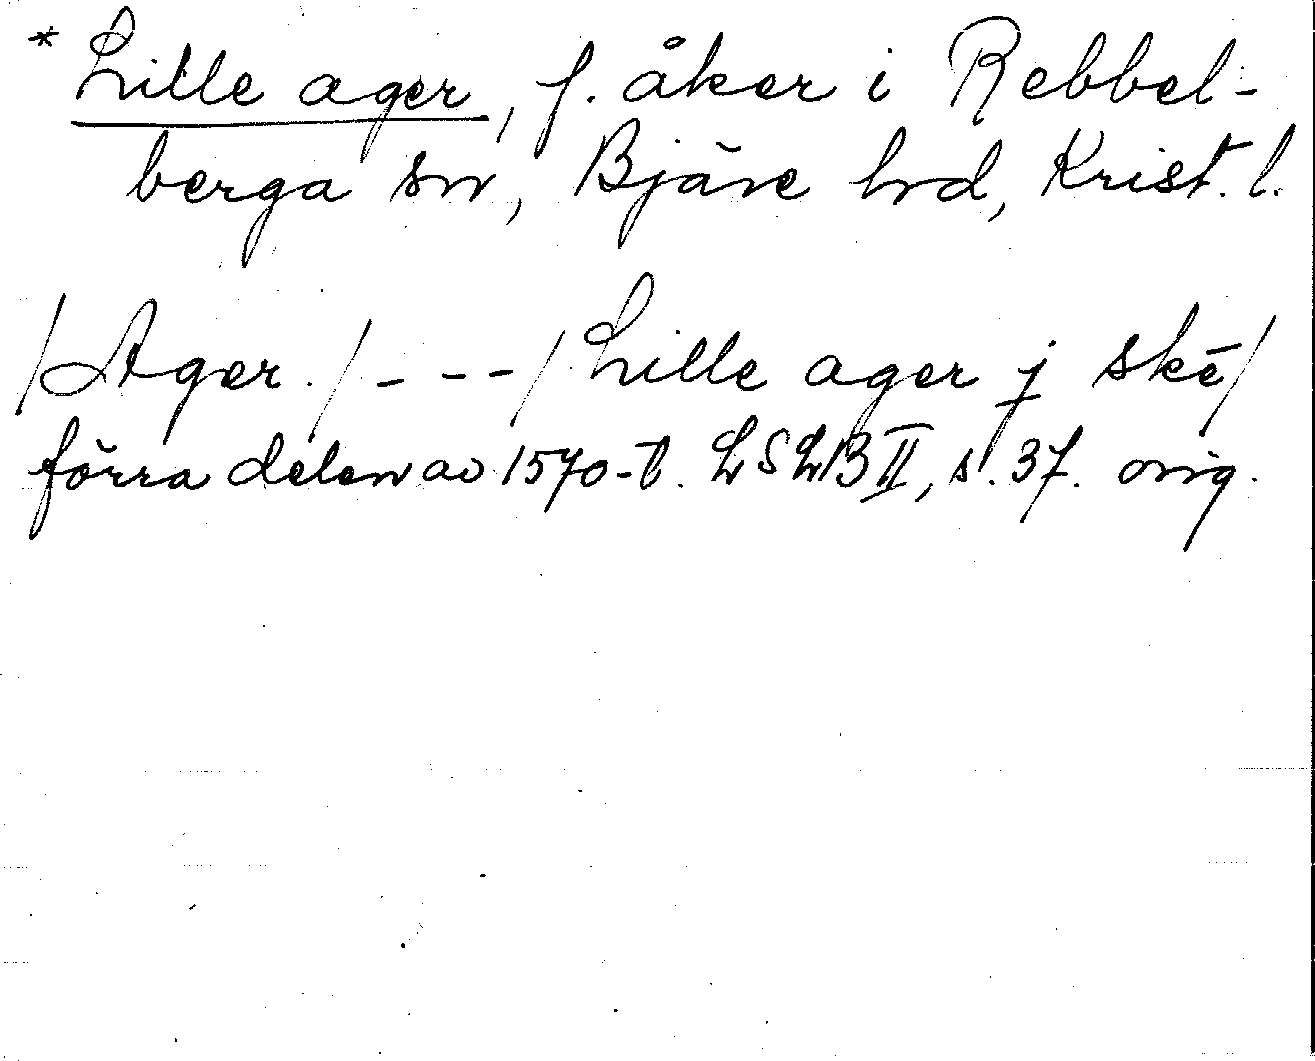 * Lille ager, f. åker i Rebbel-
berga sn, Bjäre hrd, Krist. l.
/Ager./ - - - / Lille ager j skē/
förra delen av 1570-t. LSLB II, s. 37. orig.